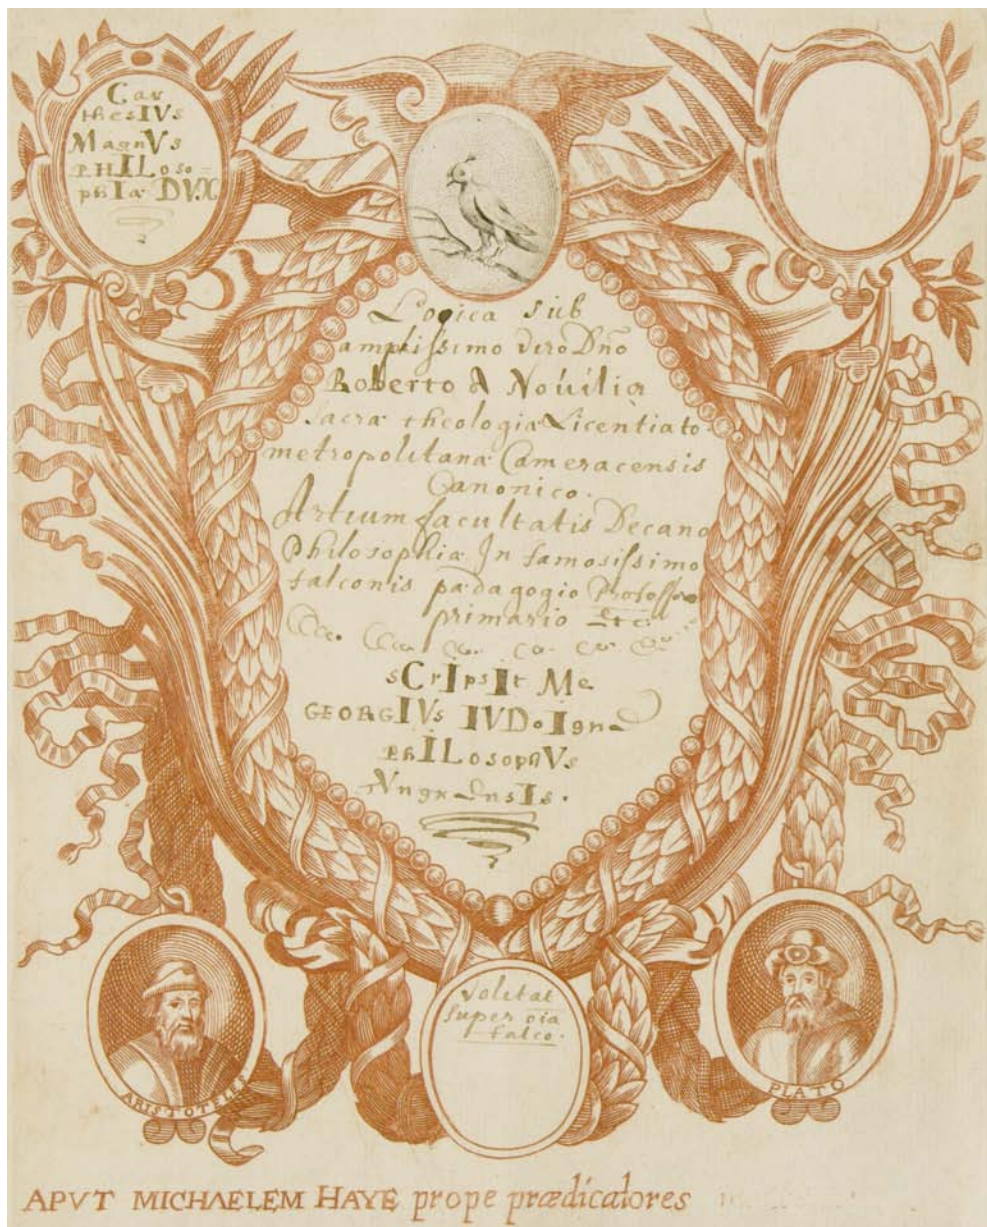 Car
thesIVs
MagnVs
PHILoso-
phIæ DVX
Logica sub
amplissimo viro Dño
Roberto A Novilia
sacræ theologiæ Licentiato
metropolitanæ Cameracensis
Canonico.
Artium facultatis Decano
Philosophiæ In famosissimo
falconis pædagogio Professore
primario Etc
sCrIpsIt Me
GEORGIVs IVDoIgne
PhILosophVs
ARISTOTELES
Volitat
super oia
falco.
PLATO
APVT MICHAELEM HAYE prope prædicatores